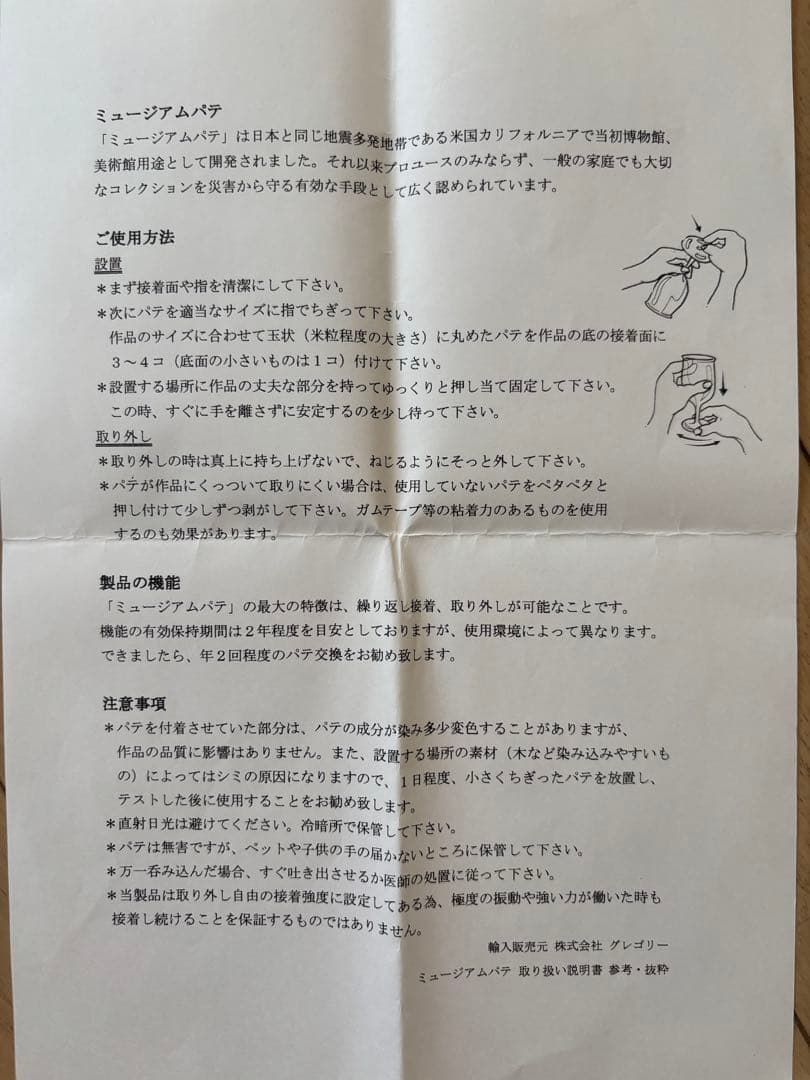 ミュージアムパテ
「ミュージアムパテ」は日本と同じ地震多発地帯である米国カリフォルニアで当初博物館、
美術館用途として開発されました。それ以来プロユースのみならず、一般の家庭でも大切
なコレクションを災害から守る有効な手段として広く認められています。
ご使用方法
設置
＊まず接着面や指を清潔にして下さい。
＊次にパテを適当なサイズに指でちぎって下さい。
作品のサイズに合わせて玉状（米粒程度の大きさ）に丸めたパテを作品の底の接着面に
３～４コ（底面の小さいものは１コ）付けて下さい。
＊設置する場所に作品の丈夫な部分を持ってゆっくりと押し当て固定して下さい。
この時、すぐに手を離さずに安定するのを少し待って下さい。
取り外し
＊取り外しの時は真上に持ち上げないで、ねじるようにそっと外して下さい。
＊パテが作品にくっついて取りにくい場合は、使用していないパテをペタペタと
押し付けて少しずつ剥がして下さい。ガムテープ等の粘着力のあるものを使用
するのも効果があります。
製品の機能
「ミュージアムパテ」の最大の特徴は、繰り返し接着、取り外しが可能なことです。
機能の有効保持期間は２年程度を目安としておりますが、使用環境によって異なります。
できましたら、年２回程度のパテ交換をお勧め致します。
注意事項
＊パテを付着させていた部分は、パテの成分が染み多少変色することがありますが、
作品の品質に影響はありません。また、設置する場所の素材（木など染み込みやすいも
の）によってはシミの原因になりますので、１日程度、小さくちぎったパテを放置し、
テストした後に使用することをお勧め致します。
＊直射日光は避けてください。冷暗所で保管して下さい。
＊パテは無害ですが、ペットや子供の手の届かないところに保管して下さい。
＊万一呑み込んだ場合、すぐ吐き出させるか医師の処置に従って下さい。
＊当製品は取り外し自由の接着強度に設定してある為、極度の振動や強い力が働いた時も
接着し続けることを保証するものではありません。
輸入販売元 株式会社 グレゴリー
ミュージアムパテ 取り扱い説明書 参考・抜粋